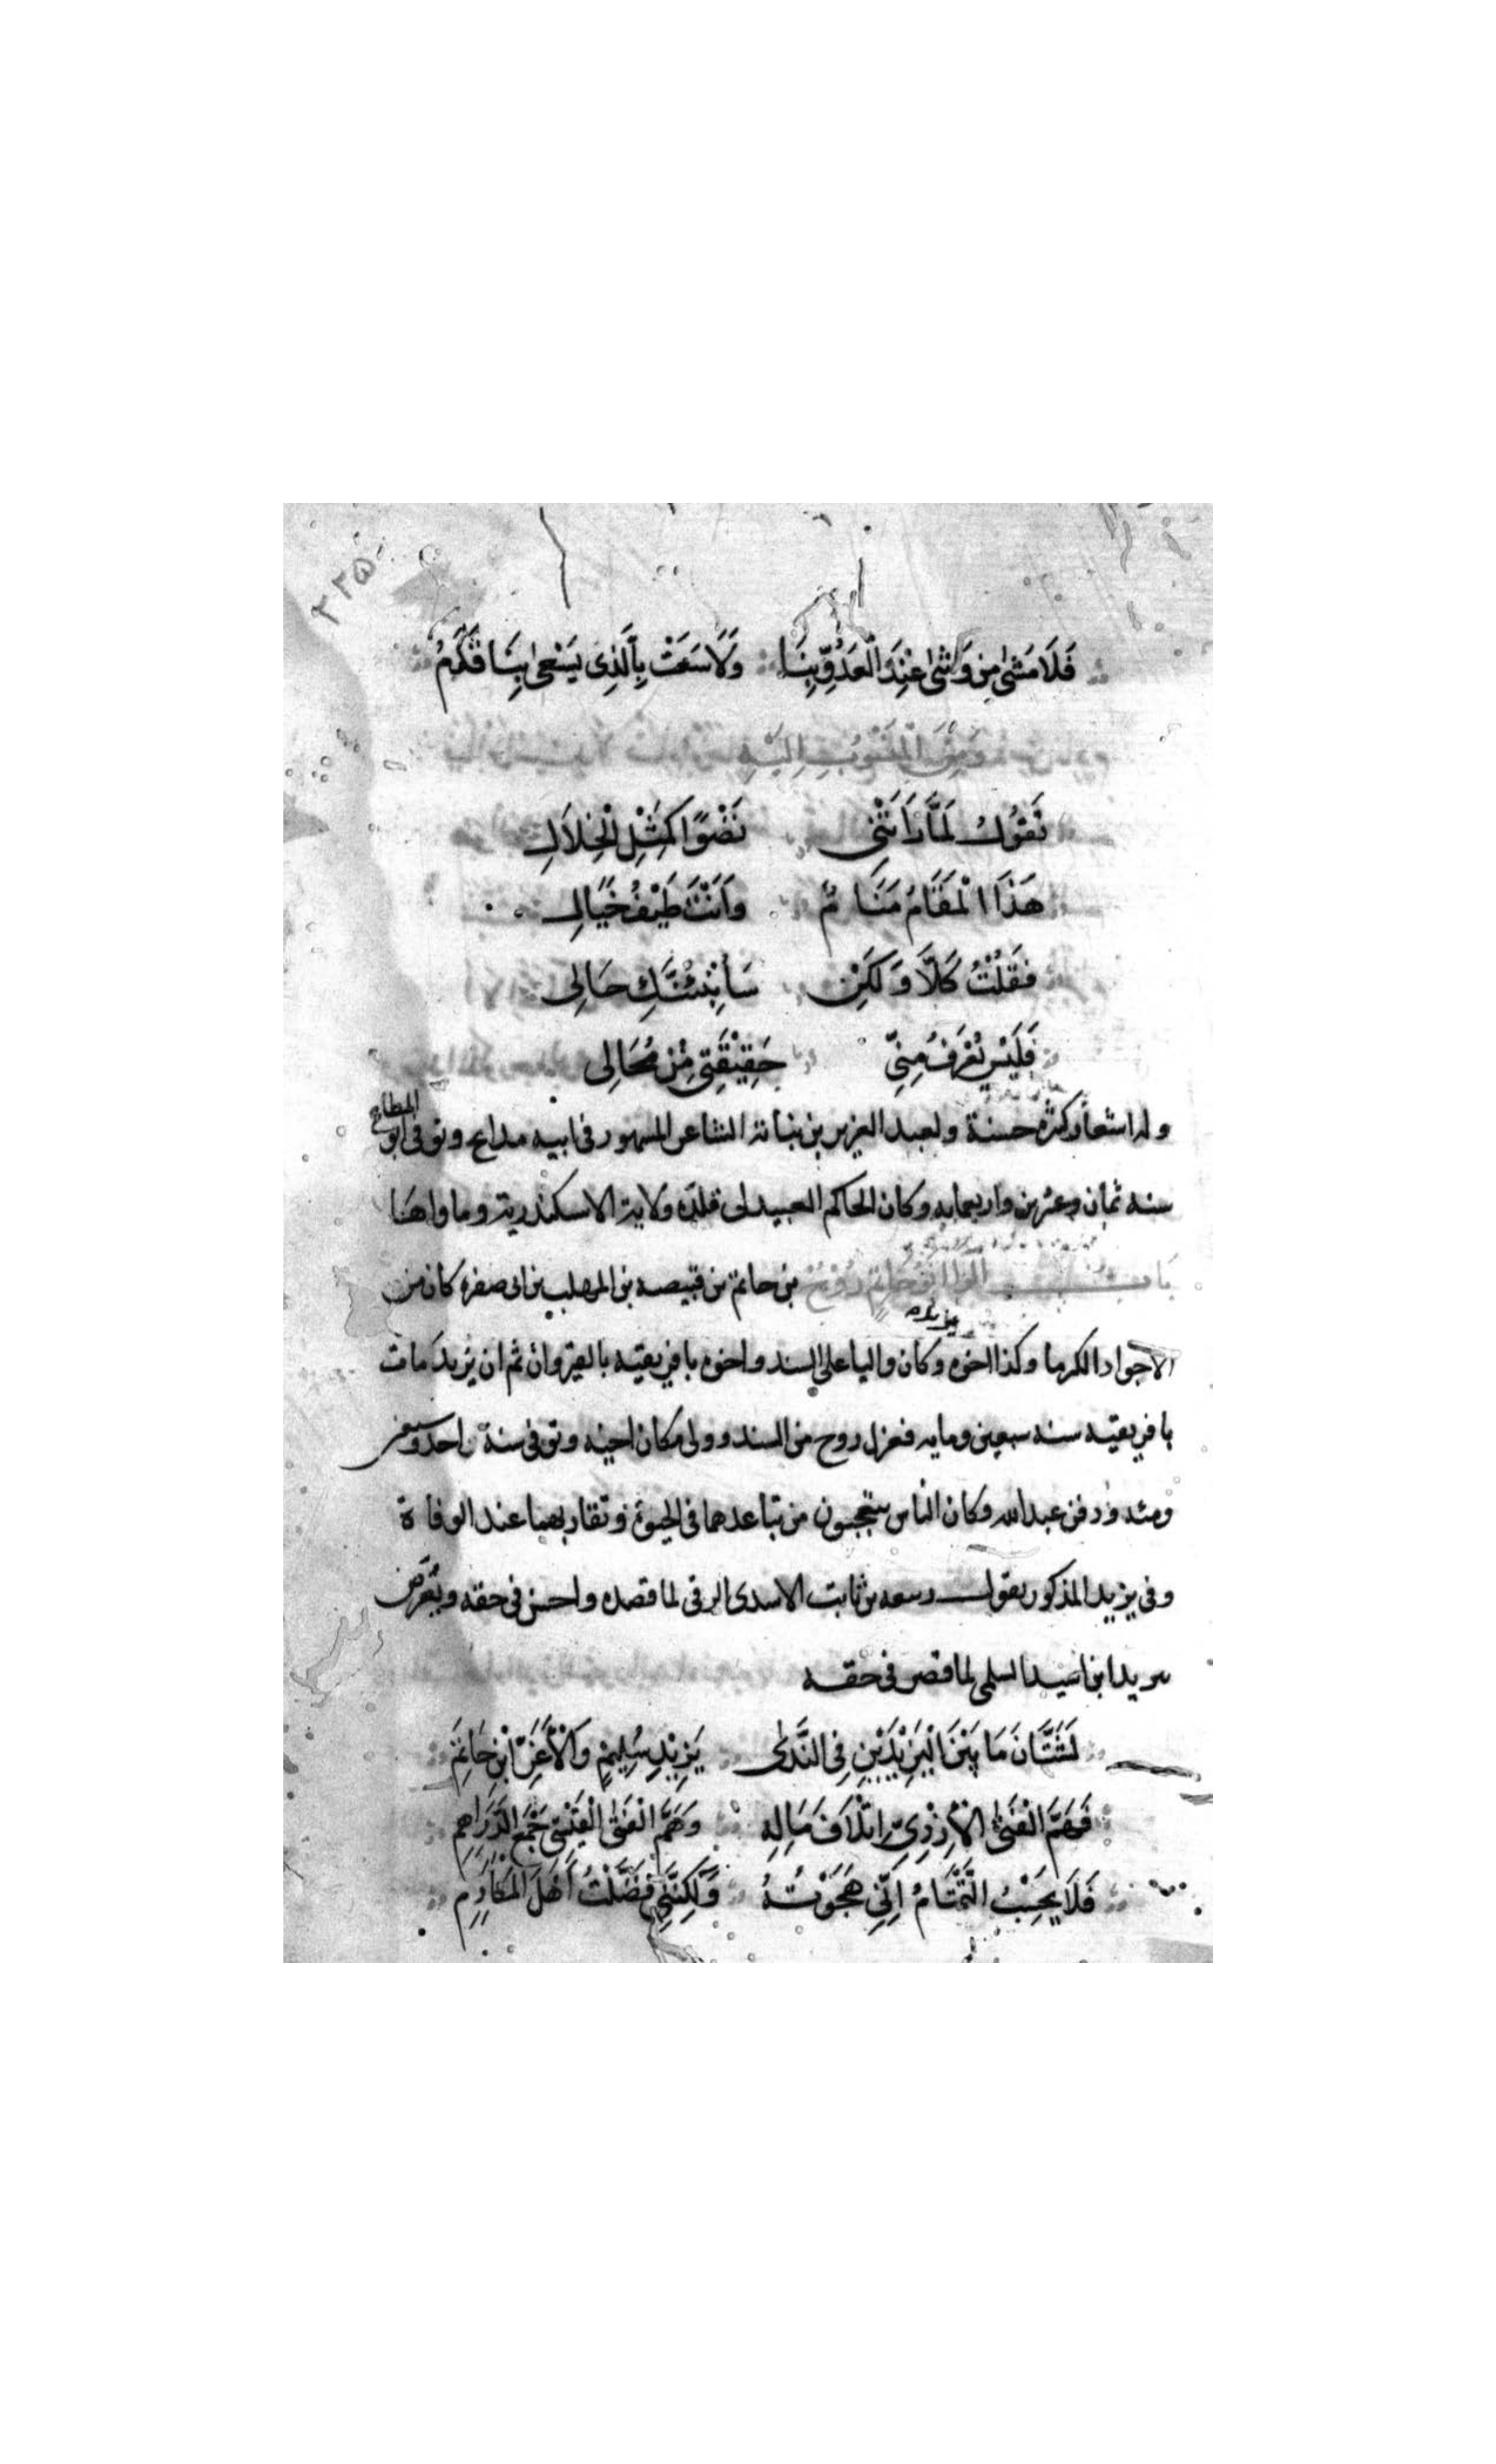 ٢٢٥
فَلَا مَشٰى مِن وَشٰى عِنْدَ الْعَدُوِّ بِنَا وَلَا سَعَتْ بِالَّذِى يَسْعٰى بِنَا قَدَمُ
وَمِنَ الْمَنْسُوبِ اِلَيْهِ
تَقُولُ لَمَّا رَاَتْنِى نَضْوًا كَمِثْلِ الْخِلَالِ
هَذَا الْمَقَامُ مَنَامٌ وَاَنْتَ طَيْفُ خَيَالِ
فَقُلْتُ كَلَّا وَلَكِنْ سَأُنْبِئُنَّكِ حَالِى
فَلَيْسَ يُعْرَفُ مِنِّى حَقِيْقَتِى مِنْ مُحَالِى
وله اشعار كثيرة حسنة ولعبد العزيز بن نباتة الشاعر المشهور فى ابيه مدايح وتوفى ابو المطاع
سنه ثمان وعشرين واربعمايه وكان الحاكم العبيدلى قلده ولاية الاسكندرية وما والاها
ابو حاتم روح بن حاتم بن قبيصه بن المهلب بن ابى صفره كان من
الاجواد الكرما وكذا اخوه يزيد وكان واليا على السند واخوه بافريقيه بالقيروان ثم ان يزيد مات
بافريقيه سنه سبعين ومايه فعزل روح من السند وولى مكان اخيه وتوفى سنة احد وسبعين
ودفن عند وكان الناس يتعجبون من تباعدهما فى الحيوة وتقاربهما عند الوفاة
وفى يزيد المذكور يقول ربيعه بن ثابت الاسدى الرقى لما قصده واحسن فى حقه ويعرض
يزيد ابن اسيد السلمى لما قصر فى حقه
لَشَتَّانَ مَا بَيْنَ الْيَزِيْدَيْنِ فِى النَّدٰى يَزِيْدِ سُلَيْمٍ وَالْاَغَرِّ ابْنِ حَاتِمِ
فَهَمُّ الْفَتَى الْاَزْدِىِّ اِتْلَافُ مَالِهِ وَهَمُّ الْفَتَى الْقَيْسِى جَمْعُ الدَّرَاهِمِ
فَلَا يَحْسِبُ التَّمْتَامُ اَنِّى هَجَوْتُهُ وَلَكِنَّنِى فَضَّلْتُ اَهْلَ الْمَكَارِمِ